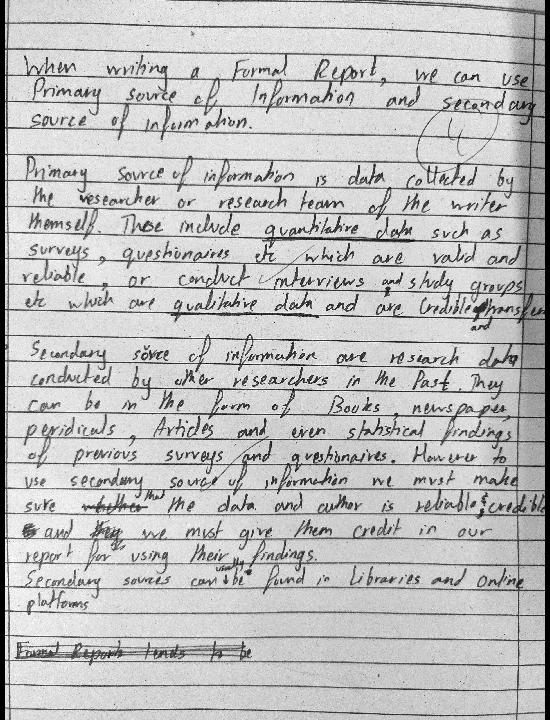 When writing a Formal Report, we can use
Primary source of Information and secondary
source of information.
4
Primary source of information is data collected by
the researcher or research team of the writer
themself. These include quantitative data such as
surveys, questionaires etc which are valid and
reliable, or conduct interviews and study groups
etc which are qualitative data and are Credible
and
Secondary source of information are research data
conducted by other researchers in the Past. They
can be in the form of Books, newspaper,
peridicals, Articles and even statstical findings
of previous surveys and questionaires. However to
use secondary source of information we must make
sure whether that the data and author is reliable & credible
and we must give them credit in our
report for using their findings.
Secondary sources can usually be found in Libraries and Online
platforms
Formal Reports tends to be